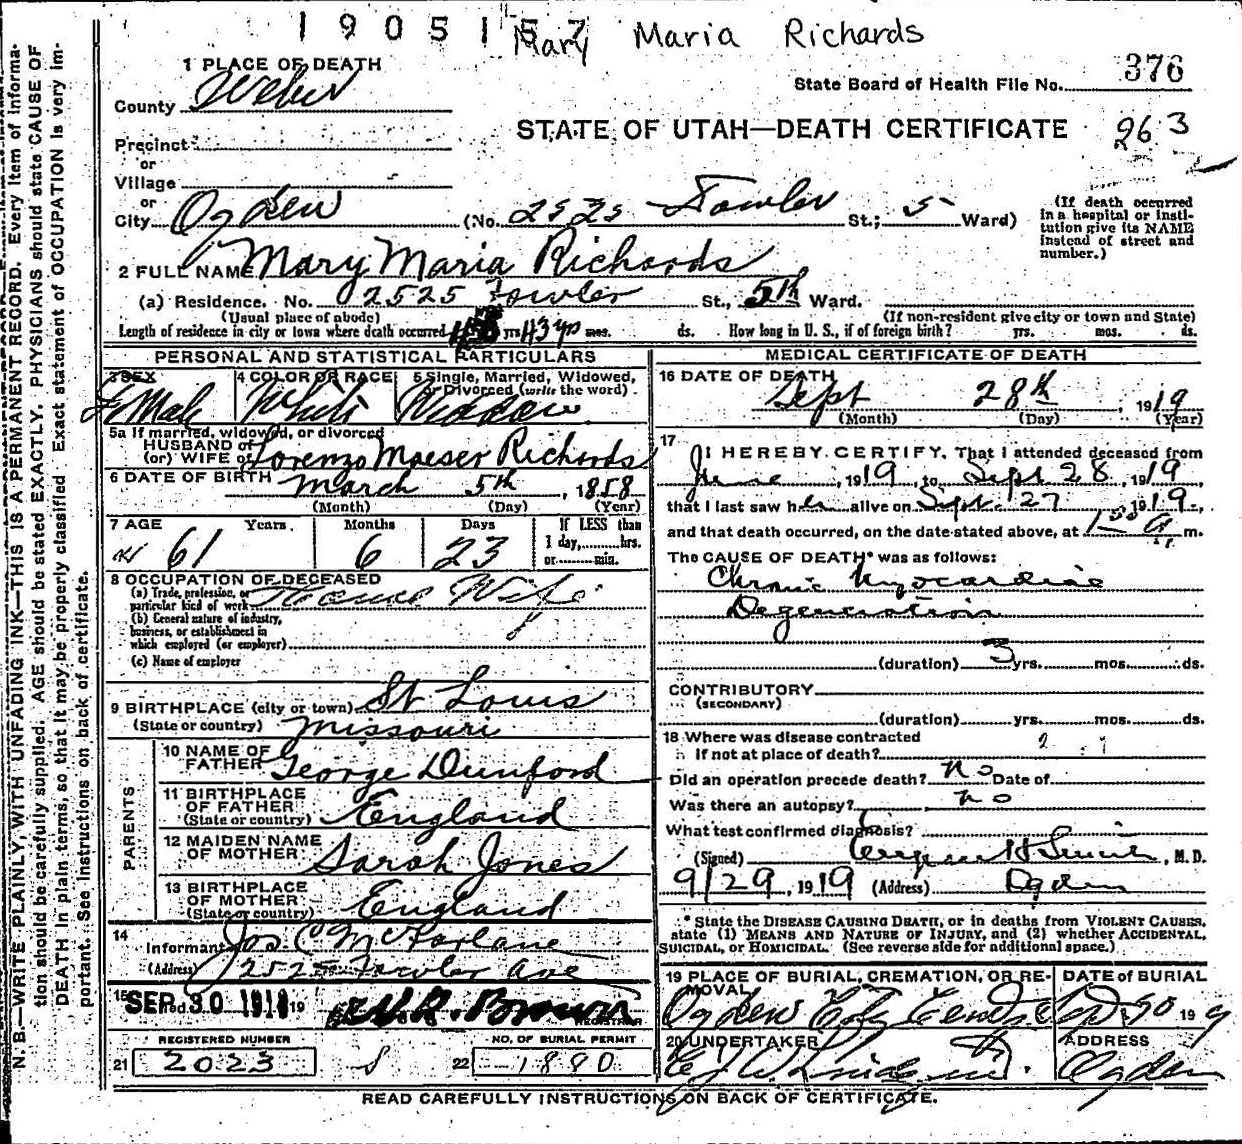 1905157
Mary Maria Richards
1 PLACE OF DEATH
County Weber
State Board of Health File No. 376
STATE OF UTAH—DEATH CERTIFICATE 263
Precinct
or
Village
or
City Ogden (No. 2525 Fowler St.; 5 Ward)
(If death occurred in a hospital or institution give its NAME instead of street and number.)
2 FULL NAME Mary Maria Richards
(a) Residence. No. 2525 Fowler St., 5th Ward.
(Usual place of abode) (If non-resident give city or town and State)
Length of residence in city or town where death occurred yrs 43 yrs mos. ds. How long in U. S., if of foreign birth? yrs. mos. ds.
PERSONAL AND STATISTICAL PARTICULARS
3 SEX 4 COLOR OR RACE 5 Single, Married, Widowed, or Divorced (write the word)
FMale White Widdow
5a If married, widowed, or divorced
HUSBAND of
(or) WIFE of Lorenzo Maeser Richards
6 DATE OF BIRTH March 5th, 1858
(Month) (Day) (Year)
7 AGE Years Months Days If LESS than
1 day, hrs.
or min.
61 6 23
8 OCCUPATION OF DECEASED
(a) Trade, profession, or
particular kind of work House Wife
(b) General nature of industry,
business, or establishment in
which employed (or employer)
(c) Name of employer
9 BIRTHPLACE (city or town) St Louis
(State or country) Missouri
PARENTS
10 NAME OF
FATHER George Dunford
11 BIRTHPLACE
OF FATHER
(State or country) England
12 MAIDEN NAME
OF MOTHER Sarah Jones
13 BIRTHPLACE
OF MOTHER
(State or country) England
14
Informant Jos C McFarlane
(Address) 2525 Fowler Ave
15 SEP 30 1919 19 Brown
REGISTRAR
REGISTERED NUMBER NO. OF BURIAL PERMIT
21 2023 8 22 1890
MEDICAL CERTIFICATE OF DEATH
16 DATE OF DEATH
Sept 28th, 1919
(Month) (Day) (Year)
17
I HEREBY CERTIFY, That I attended deceased from
June, 1919, to Sept 28, 1919
that I last saw her alive on Sept. 27, 1919,
and that death occurred, on the date stated above, at m.
The CAUSE OF DEATH* was as follows:
Chronic Myocardiac
Degeneration
(duration) 3 yrs. mos. ds.
CONTRIBUTORY
(SECONDARY)
(duration) yrs. mos. ds.
18 Where was disease contracted
if not at place of death?
Did an operation precede death? No Date of
Was there an autopsy? no
What test confirmed diagnosis?
(Signed) H , M. D.
9/29, 1919 (Address) Ogden
* State the DISEASE CAUSING DEATH, or in deaths from VIOLENT CAUSES,
state (1) MEANS AND NATURE OF INJURY, and (2) whether ACCIDENTAL,
SUICIDAL, or HOMICIDAL. (See reverse side for additional space.)
19 PLACE OF BURIAL, CREMATION, OR REMOVAL DATE of BURIAL
Ogden City Sept 30 1919
20 UNDERTAKER ADDRESS
Ogden
READ CAREFULLY INSTRUCTIONS ON BACK OF CERTIFICATE.
N. B.—WRITE PLAINLY, WITH UNFADING INK—THIS IS A PERMANENT RECORD. Every item of informa-
tion should be carefully supplied. AGE should be stated EXACTLY. PHYSICIANS should state CAUSE OF
DEATH in plain terms, so that it may be properly classified. Exact statement of OCCUPATION is very im-
portant. See instructions on back of certificate.